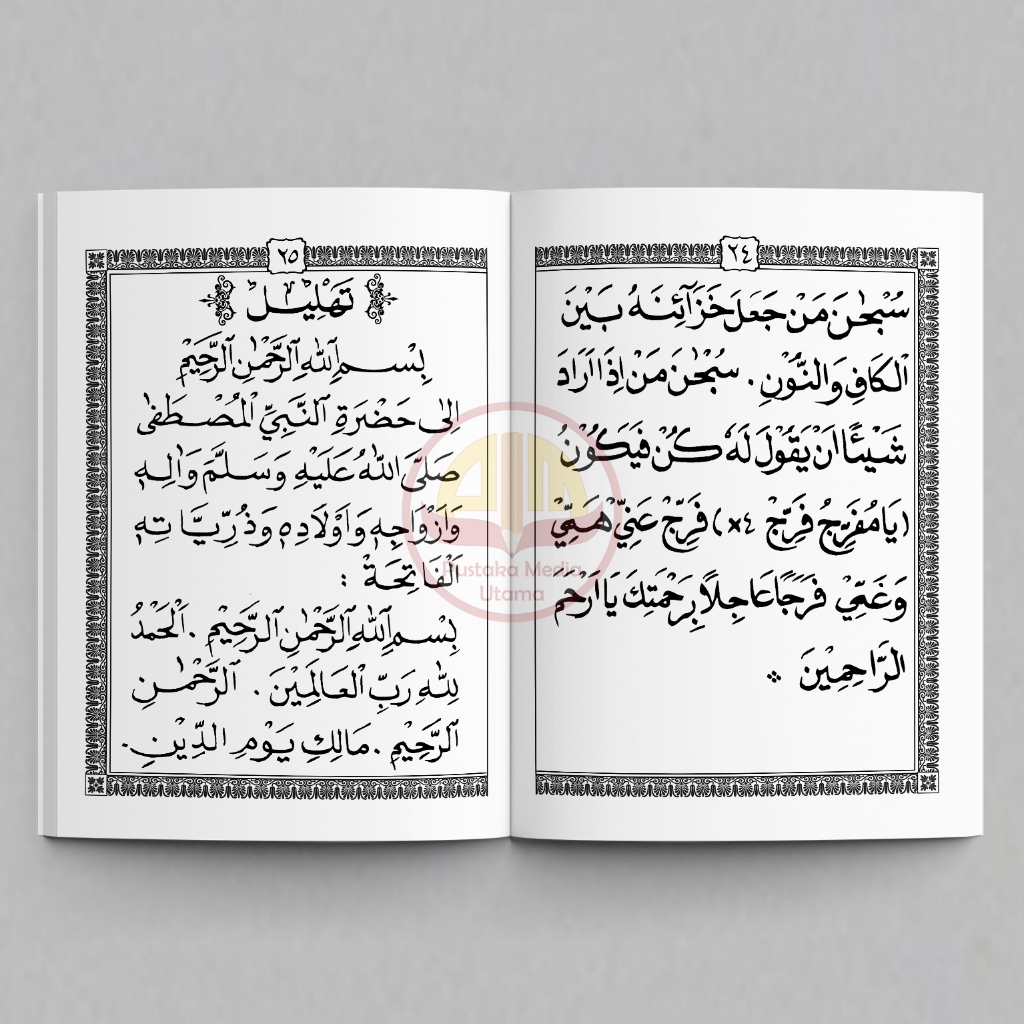 ٢٤
سُبْحٰنَ مَنْ جَعَلَ خَزَآئِنَهُ بَيْنَ
الْكَافِ وَالنُّوْنِ . سُبْحٰنَ مَنْ اِذَا اَرَادَ
شَيْئًا اَنْ يَقُوْلَ لَهُ كُنْ فَيَكُوْنُ
(يَا مُفَرِّجُ فَرِّجْ ×٤) فَرِّجْ عَنِّيْ هَمِّيْ
وَغَمِّيْ فَرَجًا عَاجِلًا بِرَحْمَتِكَ يَا اَرْحَمَ
الرَّاحِمِيْنَ
٢٥
تَهْلِيْلْ
بِسْمِ اللّٰهِ الرَّحْمٰنِ الرَّحِيْمِ
اِلٰى حَضْرَةِ النَّبِيِّ الْمُصْطَفٰى
صَلَّى اللّٰهُ عَلَيْهِ وَسَلَّمَ وَاٰلِهٖ
وَاَزْوَاجِهٖ وَاَوْلَادِهٖ وَذُرِّيَّاتِهٖ
اَلْفَاتِحَةْ :
بِسْمِ اللّٰهِ الرَّحْمٰنِ الرَّحِيْمِ . اَلْحَمْدُ
لِلّٰهِ رَبِّ الْعَالَمِيْنَ . الرَّحْمٰنِ
الرَّحِيْمِ . مَالِكِ يَوْمِ الدِّيْنِ .
Pustaka Media
Utama